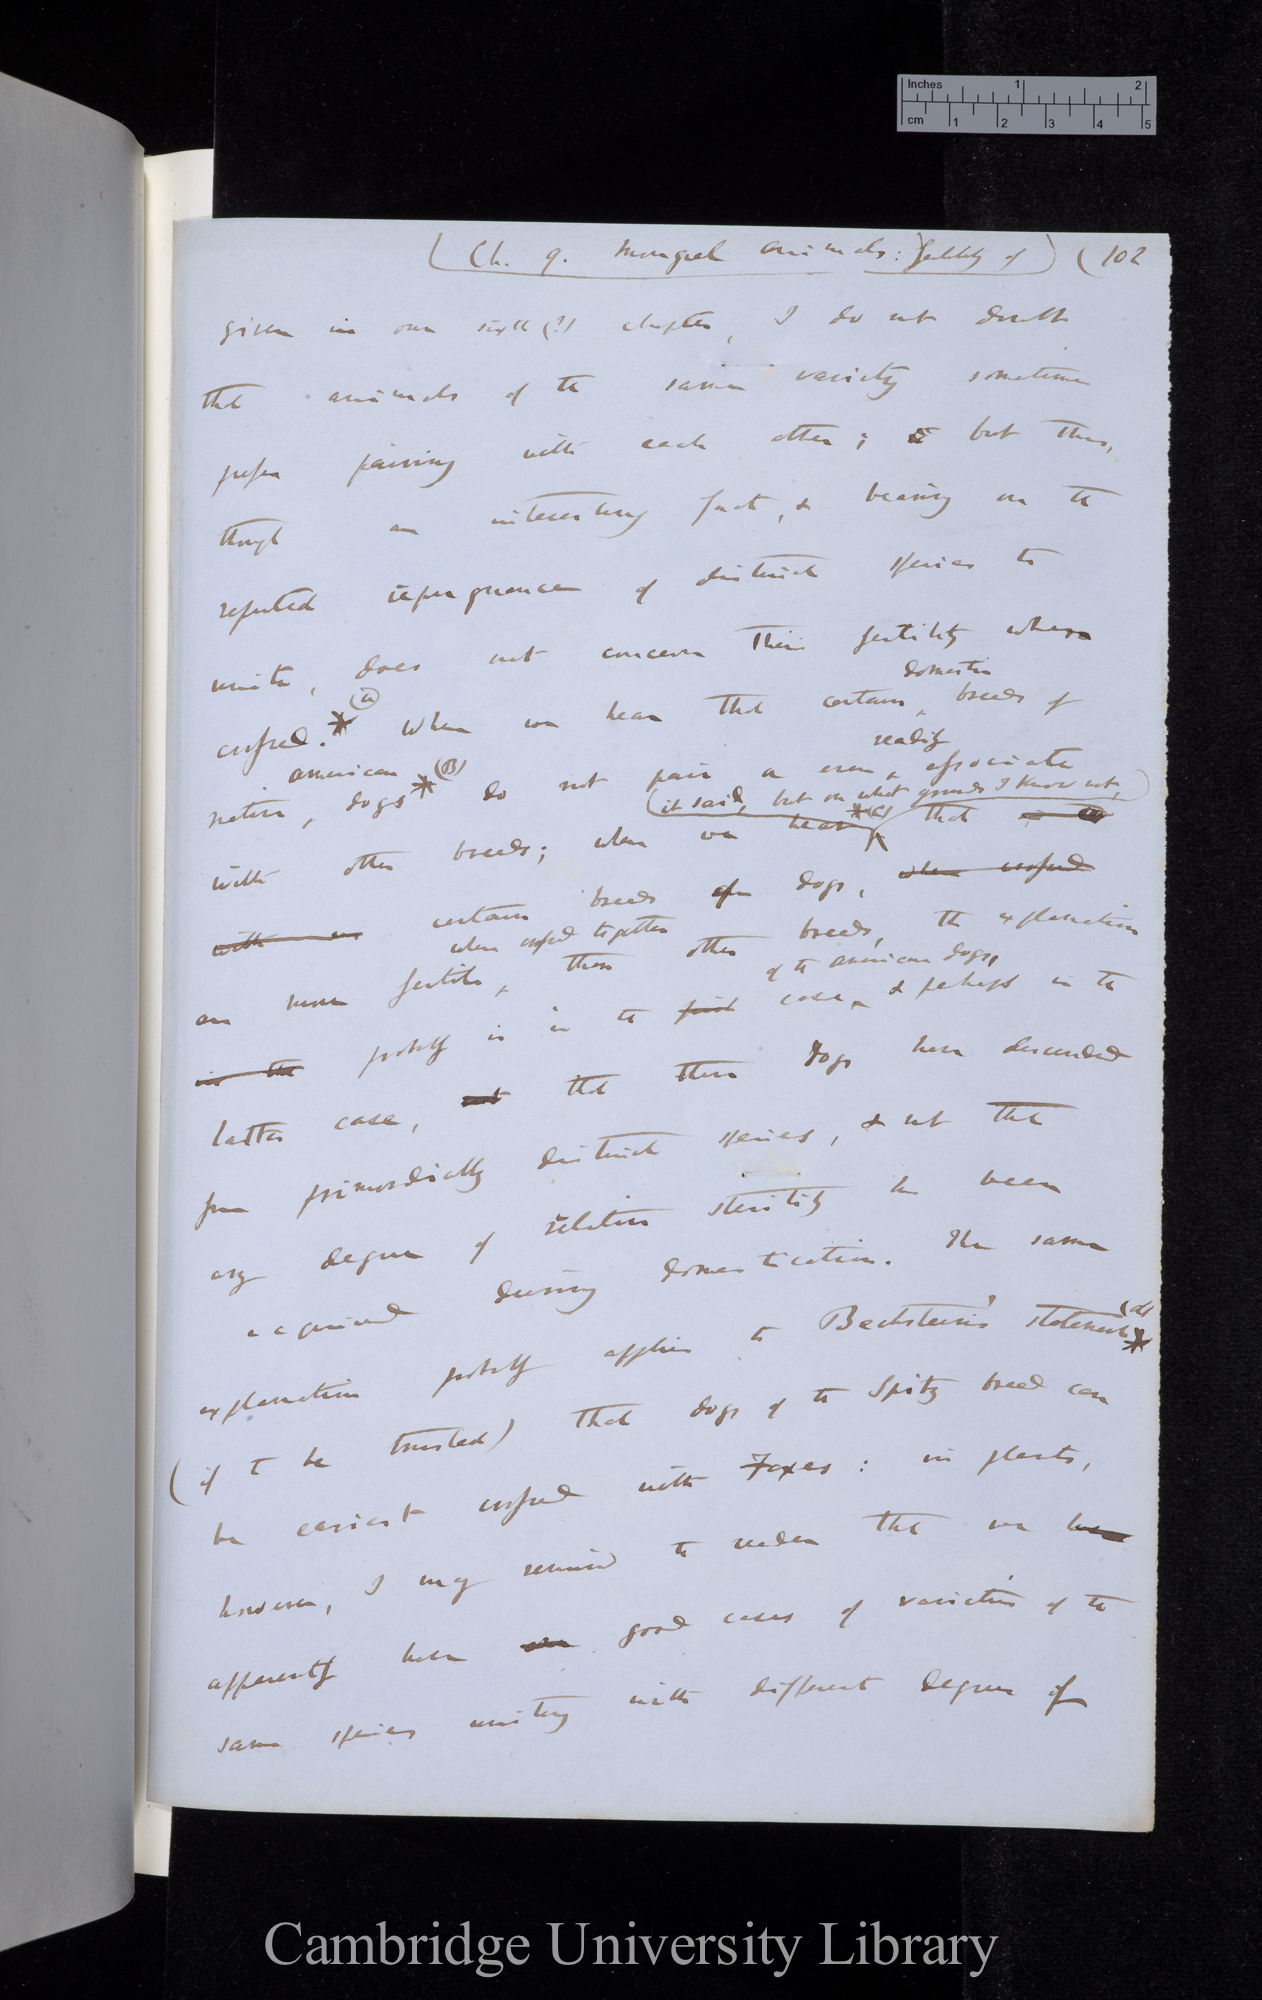 Inches 1 2
cm 1 2 3 4 5
(Ch. 9. Mongrel animals: fertility of) (102
given in our sixth (?) chapter, I do not doubt
that animals of the same variety sometimes
prefer pairing with each other; but this,
though an interesting fact, & bearing on the
reputed repugnance of distinct species to
unite, does not concern their fertility when
domestic
crossed.* (a) When we hear that certain breeds of
readily
american
native, dogs* (B) do not pair or even associate
(it said, but on what grounds I know not,)
with other breeds; when we hear *(c) that
with certain breeds of dogs, when crossed
when crossed together
are more fertile, than other breeds, the explanation
of the American dogs,
in the probably is in the first case & perhaps in the
latter case, not that these dogs have descended
from primordially distinct species, & not that
any degree of relative sterility has been
acquired during domestication. The same
explanation probably applies to Bechstein's statement (d) *
(if to be trusted) that dogs of the Spitz breed can
be easiest crossed with Foxes: in plants,
however, I may remind the reader that we have
apparently have good cases of varieties of the
same species uniting with different degrees of
Cambridge University Library